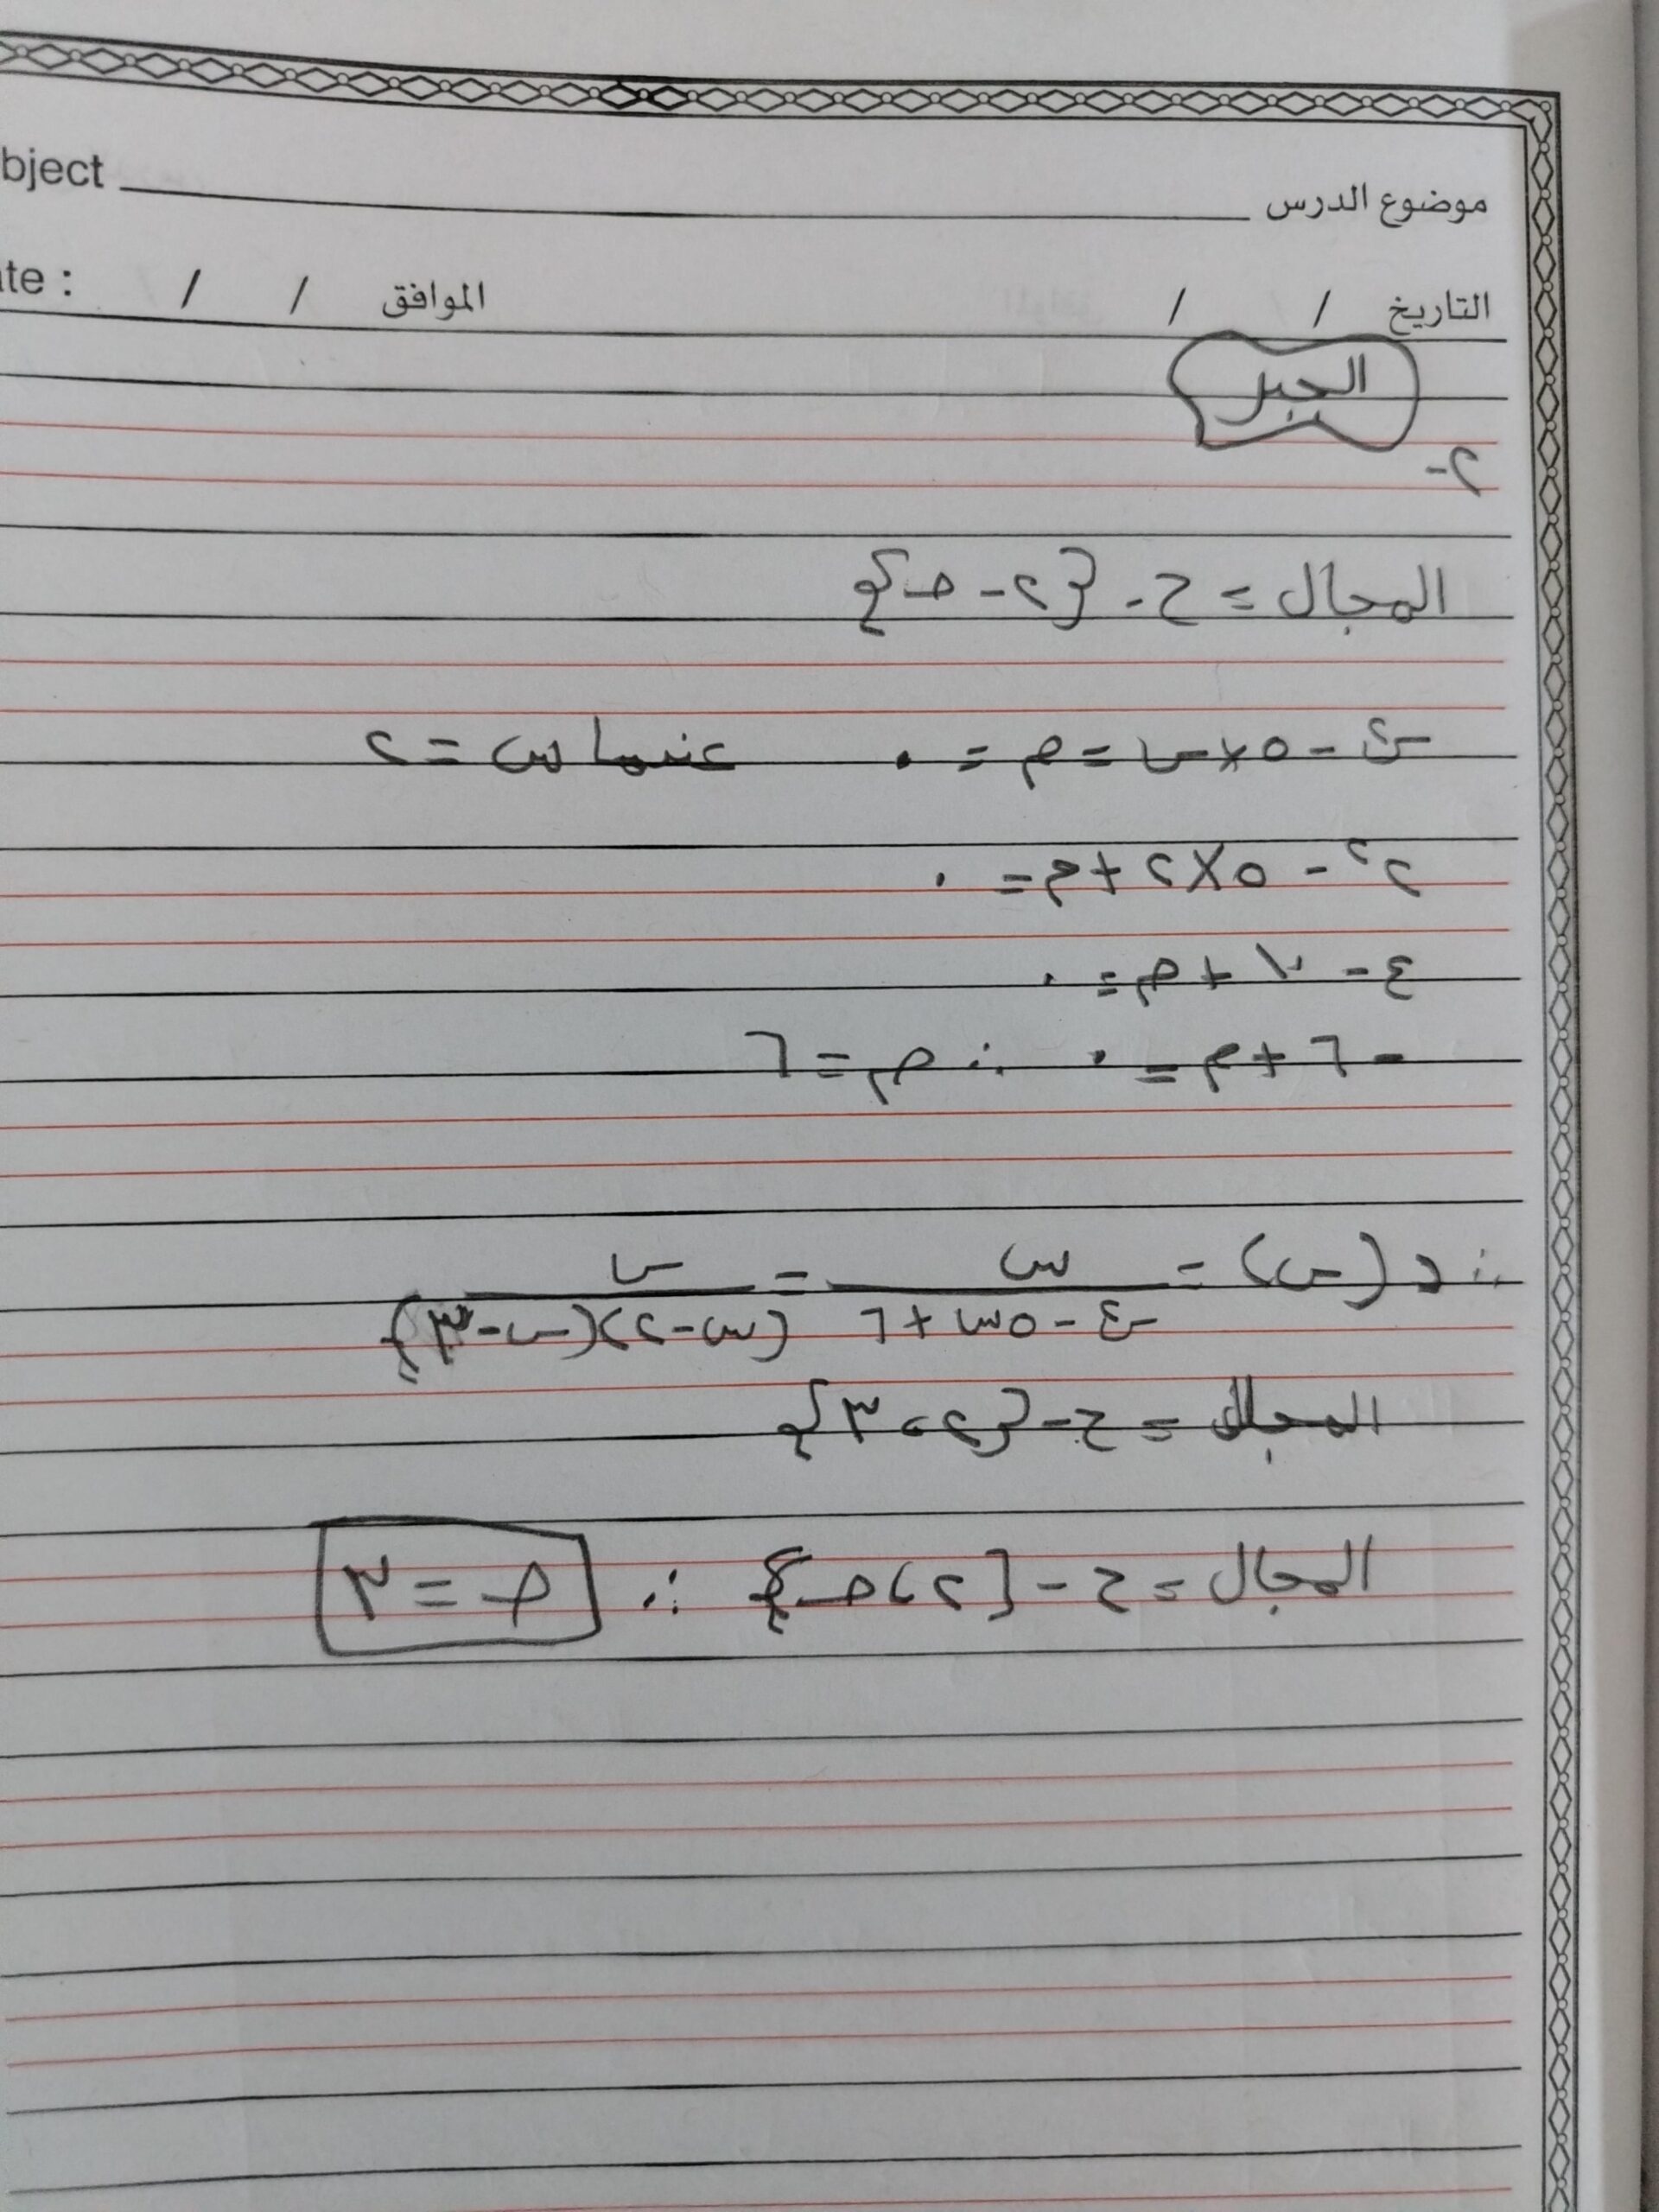 bject موضوع الدرس
ate : / / الموافق / / التاريخ
الجبر
٢-
المجال = ح - {٢ - جـ}
س٢ - ٥×س = م = ٠ عندما س = ٢
٢٢ - ٥×٢ + م = ٠
٤ - ١٠ + م = ٠
- ٦ + م = ٠ ∴ م = ٦
∴ د(س) = س / س٢ - ٥س + ٦ = س / (س-٢)(س-٣)
المجال = ح - {٢، ٣}
المجال = ح - {٢، جـ} ∴ جـ = ٣